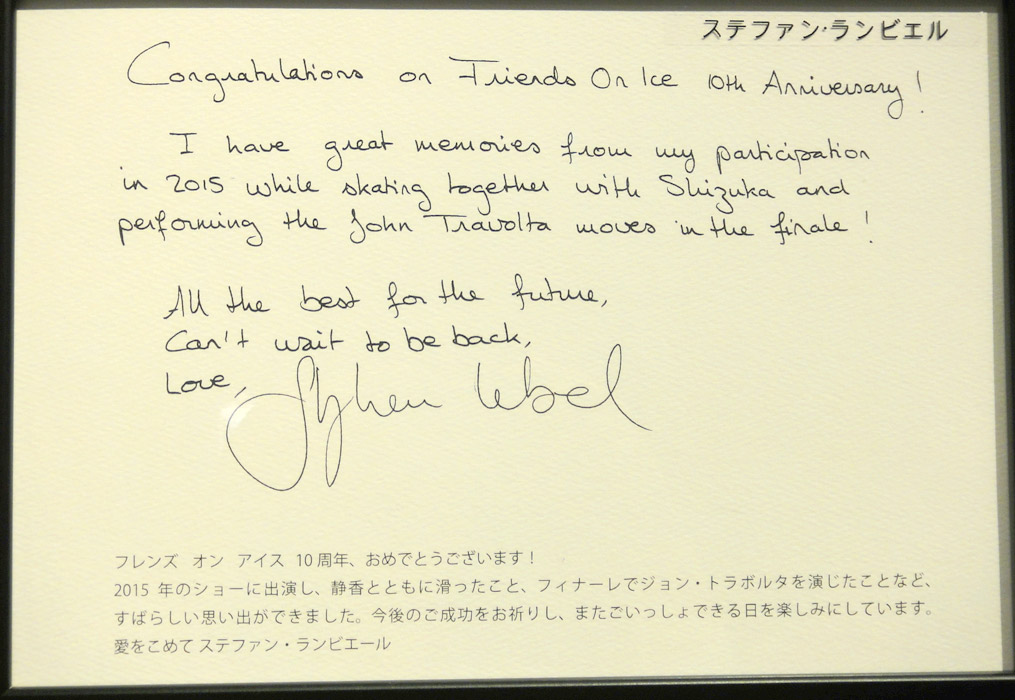 ステファン・ランビエル
Congratulations on Friends On Ice 10th Anniversary!
I have great memories from my participation
in 2015 while skating together with Shizuka and
performing the John Travolta moves in the finale!
All the best for the future,
Can't wait to be back,
Love,
フレンズ オン アイス 10周年、おめでとうございます!
2015 年のショーに出演し、静香とともに滑ったこと、フィナーレでジョン・トラボルタを演じたことなど、
すばらしい思い出ができました。今後のご成功をお祈りし、またごいっしょできる日を楽しみにしています。
愛をこめて ステファン・ランビエール